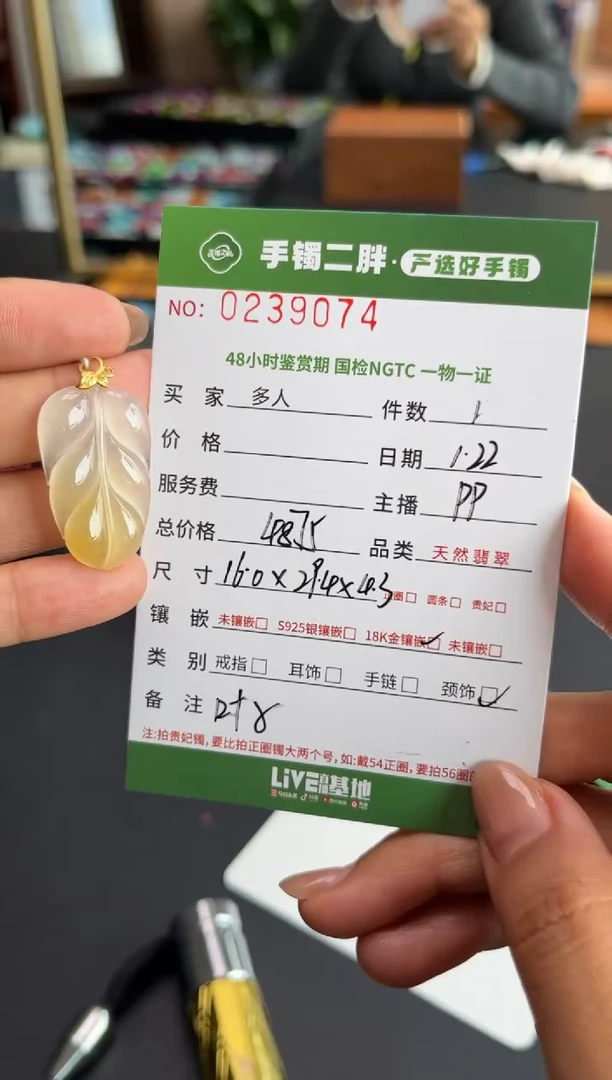 手镯二胖·严选好手镯
NO: 0239074
48小时鉴赏期 国检NGTC 一物一证
买家 多人 件数 1
价格 日期 1.22
服务费 主播 PP
总价格 品类 天然翡翠
尺寸 16.0×29.4×4.3 圆条□ 贵妃□
镶嵌 未镶嵌□ S925银镶嵌□ 18K金镶嵌□ 未镶嵌□
类别 戒指□ 耳饰□ 手链□ 颈饰□
备注 叶
注:拍贵妃镯,要比拍正圈镯大两个号,如:戴54正圈,要拍56圈
LiVE 基地